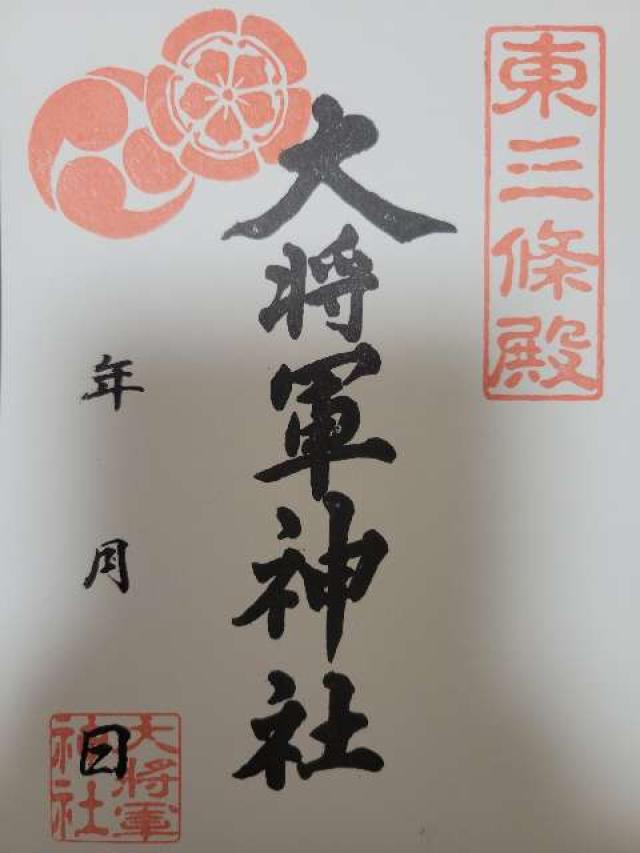 東三條殿
大将軍神社
年 月 日
大将軍
神社